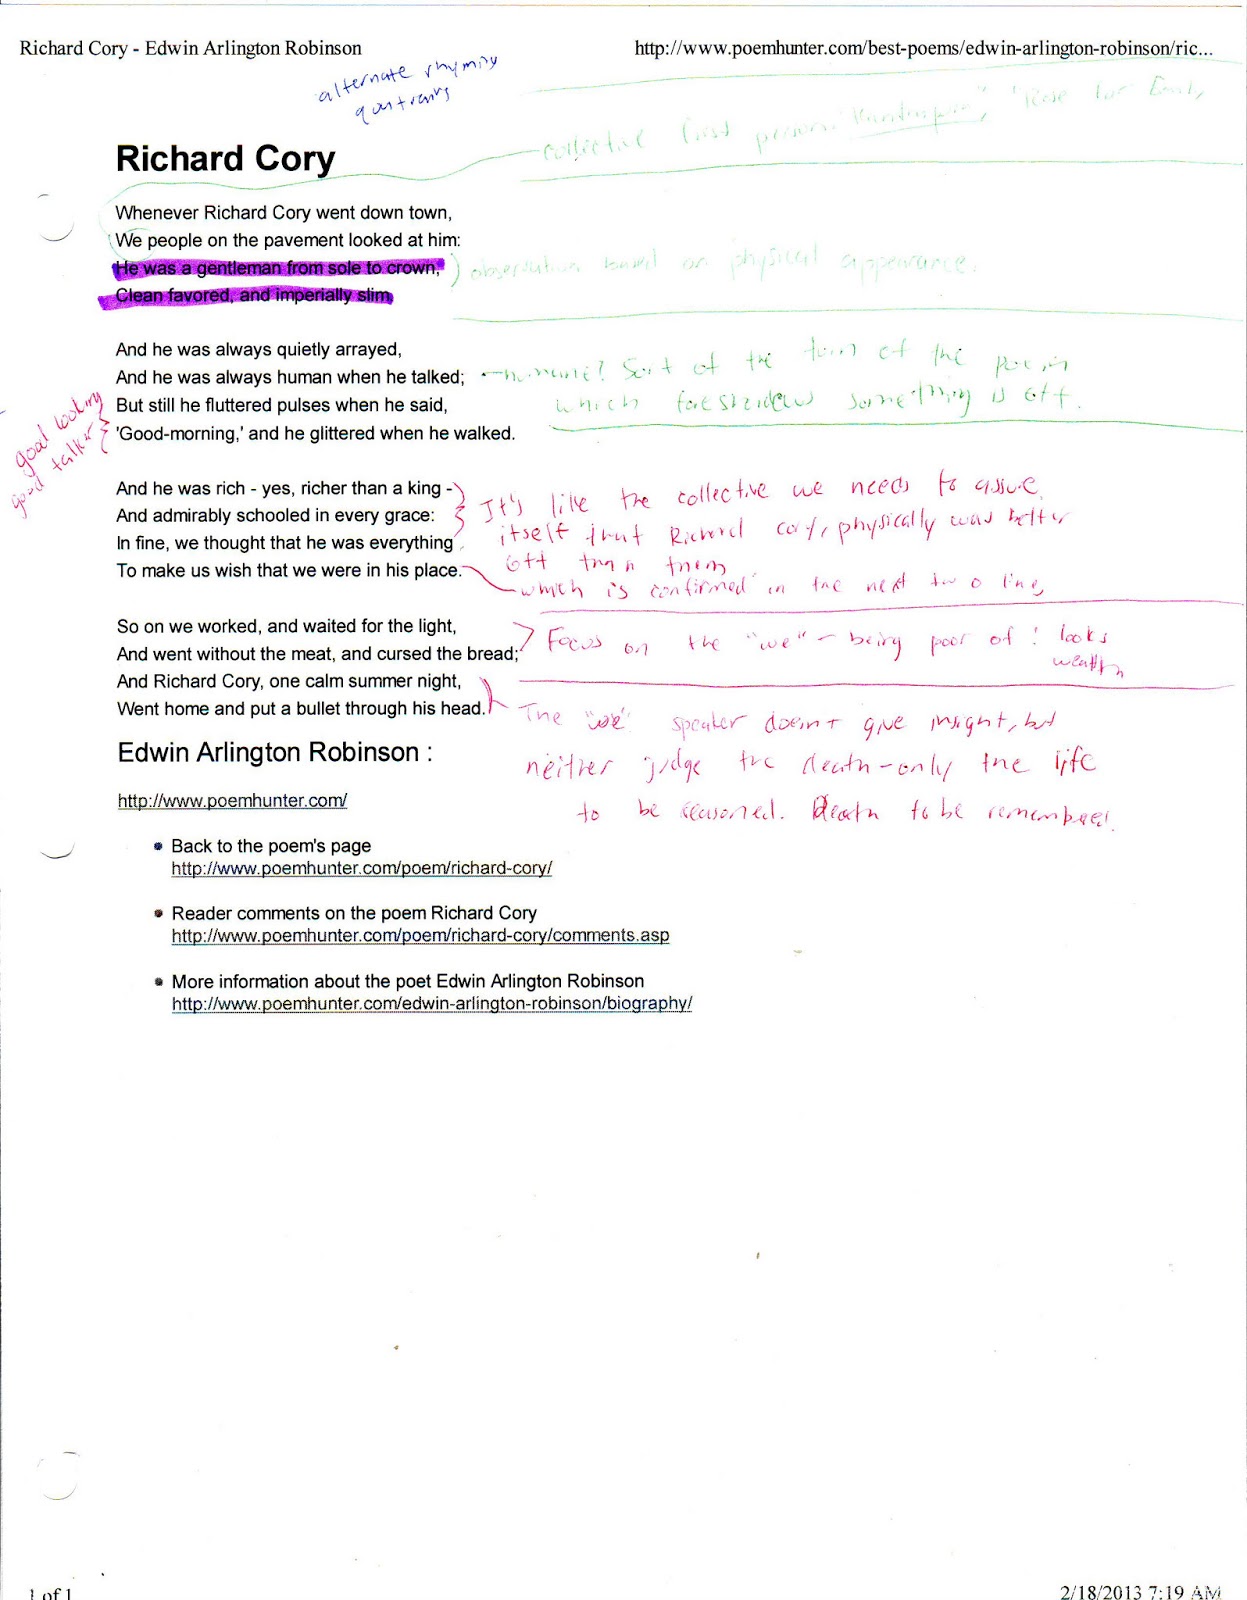 Richard Cory - Edwin Arlington Robinson
http://www.poemhunter.com/best-poems/edwin-arlington-robinson/ric...
alternate rhyming
quatrains
Richard Cory
collective first person "Rose for Emily
Whenever Richard Cory went down town,
We people on the pavement looked at him:
He was a gentleman from sole to crown,
Clean favored, and imperially slim.
observation based on physical appearance.
And he was always quietly arrayed,
And he was always human when he talked;
But still he fluttered pulses when he said,
'Good-morning,' and he glittered when he walked.
humane? Sort of the turn of the poem
which foreshadows something is off.
good looking
good talker
And he was rich - yes, richer than a king -
And admirably schooled in every grace:
In fine, we thought that he was everything
To make us wish that we were in his place.
It's like the collective we needs to assure
itself that Richard Cory, physically was better
off than them
which is confirmed in the next two lines
So on we worked, and waited for the light,
And went without the meat, and cursed the bread;
And Richard Cory, one calm summer night,
Went home and put a bullet through his head.
Focus on the "we" - being poor of : looks
wealth
The "we" speaker doesn't give insight, but
neither judge the death-only the life
to be reasoned. Death to be remembered.
Edwin Arlington Robinson :
http://www.poemhunter.com/
• Back to the poem's page
http://www.poemhunter.com/poem/richard-cory/
• Reader comments on the poem Richard Cory
http://www.poemhunter.com/poem/richard-cory/comments.asp
• More information about the poet Edwin Arlington Robinson
http://www.poemhunter.com/edwin-arlington-robinson/biography/
1 of 1
2/18/2013 7:19 AM